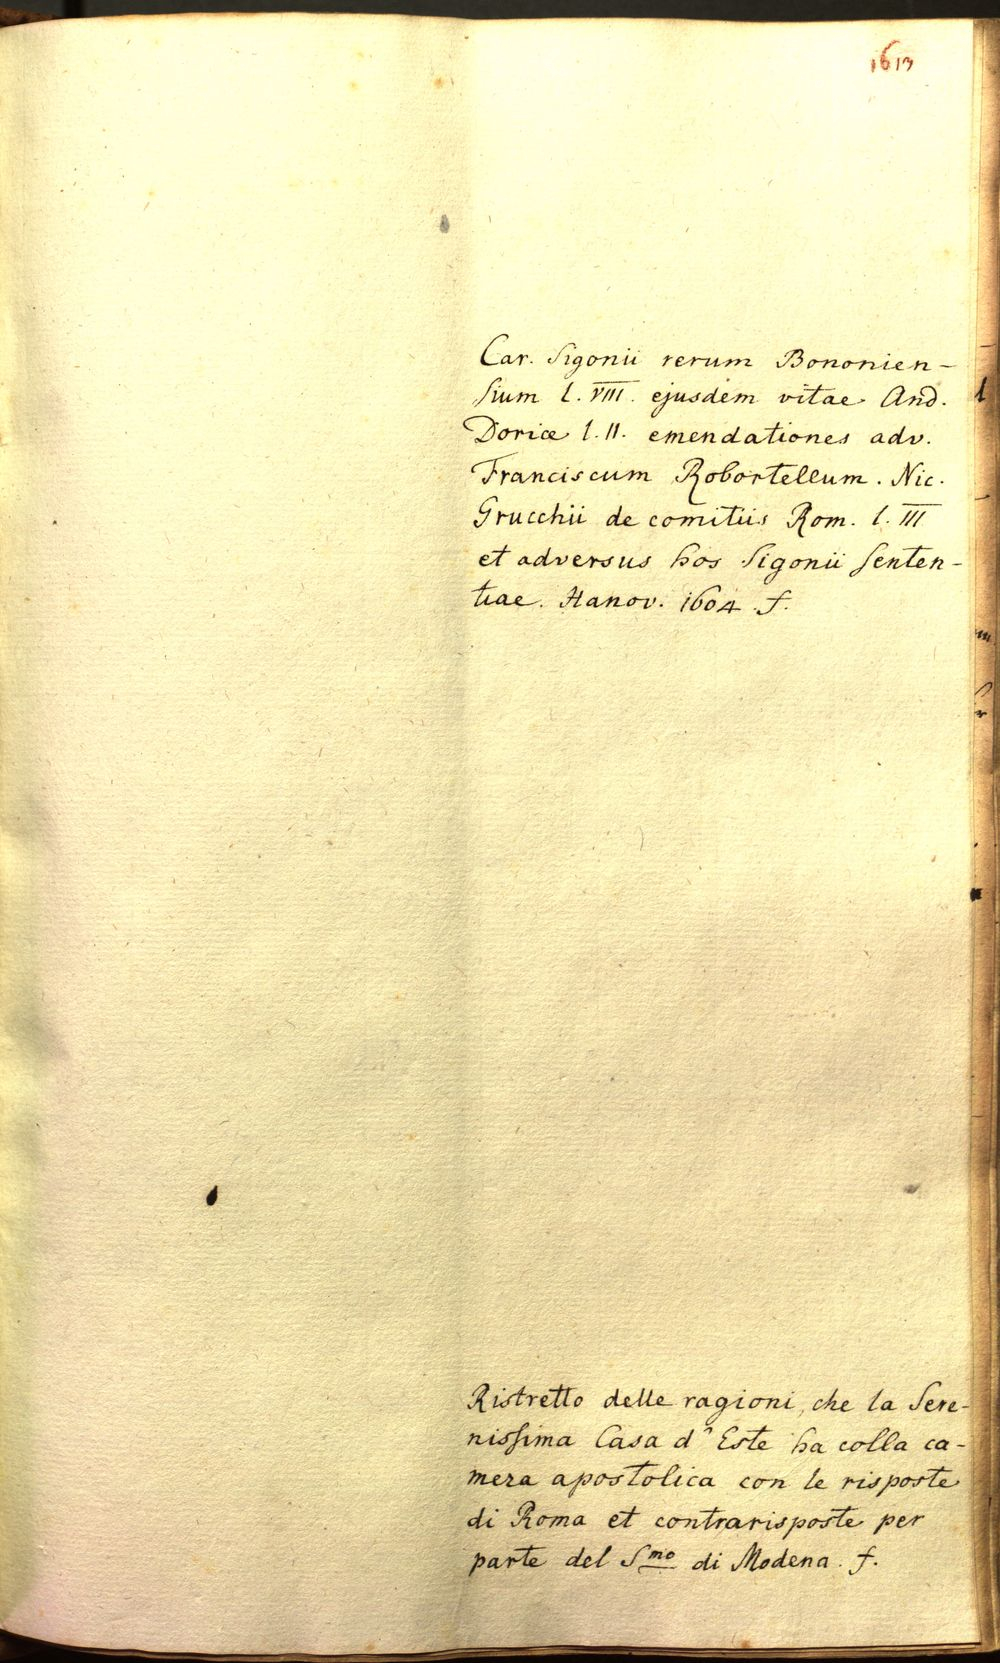 1613
Car. Sigonii rerum Bononien-
sium l. VIII. ejusdem vitae And.
Doriae l. II. emendationes adv.
Franciscum Robortellum. Nic.
Grucchii de comitiis Rom. l. III
et adversus hos Sigonii senten-
tiae. Hanov. 1604. f.
Ristretto delle ragioni, che la Sere-
nissima Casa d' Este ha colla ca-
mera apostolica con le risposte
di Roma et contrarisposte per
parte del Smo di Modena. f.